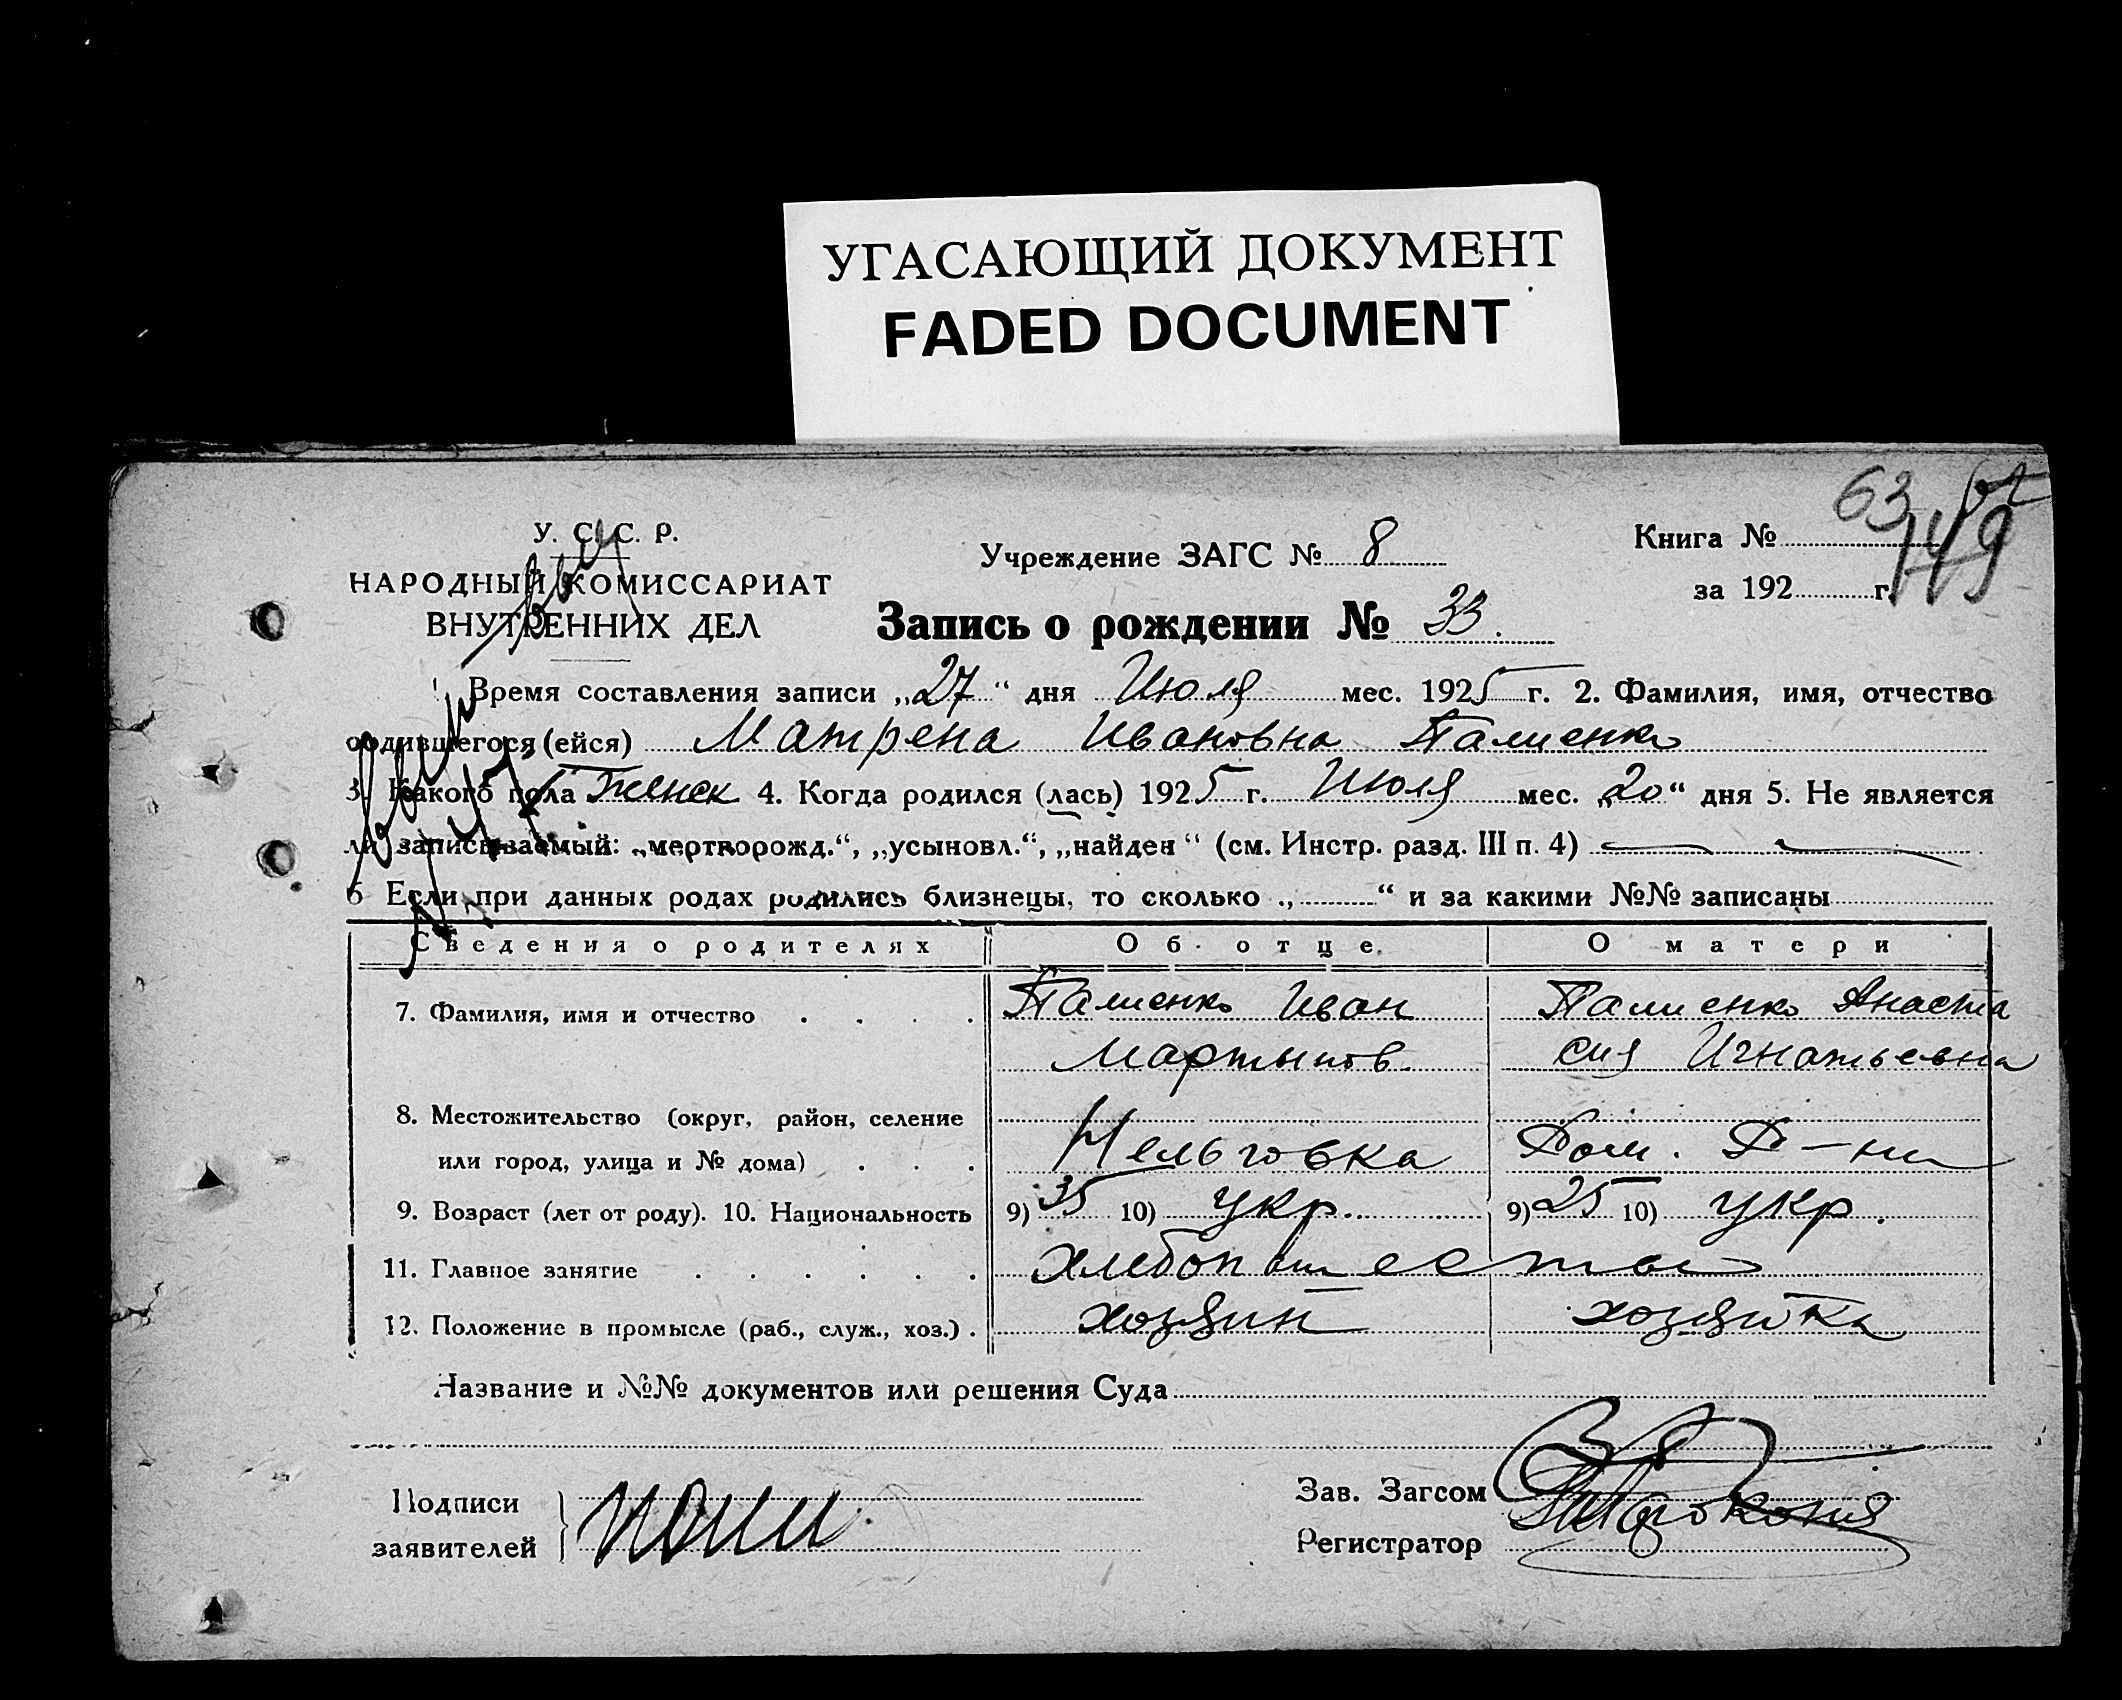 УГАСАЮЩИЙ ДОКУМЕНТ
FADED DOCUMENT
63
149
У. С. С. Р.
НАРОДНЫЙ КОМИССАРИАТ
ВНУТРЕННИХ ДЕЛ
Учреждение ЗАГС № 8
Книга №
за 192 г.
Запись о рождении № 33.
Время составления записи „27“ дня Июля мес. 1925 г. 2. Фамилия, имя, отчество
родившегося (ейся) Матрена Ивановна Палиенко
3. Какого пола Женск 4. Когда родился (лась) 1925 г. Июля мес. „20“ дня 5. Не является
ли записываемый: „мертворожд.“, „усыновл.“, „найден“ (см. Инстр. разд. III п. 4)
6 Если при данных родах родились близнецы, то сколько „ “ и за какими №№ записаны
Сведения о родителях Об отце О матери
7. Фамилия, имя и отчество Палиенко Иван Палиенко Анаста
Мартынов. сия Игнатьевна
8. Местожительство (округ, район, селение
или город, улица и № дома) Нельговка
9. Возраст (лет от роду). 10. Национальность 9) 35 10) укр. 9) 25 10) укр.
11. Главное занятие
12. Положение в промысле (раб., служ., хоз.) хозяин хозяйка
Название и №№ документов или решения Суда
Подписи
заявителей
Зав. Загсом
Регистратор